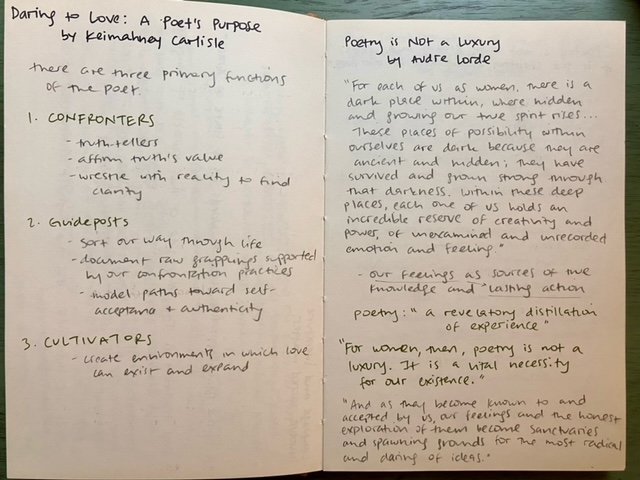 Daring to Love: A Poet's Purpose
by Keimahney Carlisle
there are three primary functions
of the poet.
1. CONFRONTERS
- truth-tellers
- affirm truth's value
- wrestle with reality to find
clarity
2. Guideposts
- sort our way through life
- document raw grapplings supported
by our confrontation practices
- model paths toward self-
acceptance + authenticity
3. CULTIVATORS
- create environments in which love
can exist and expand
Poetry is Not a Luxury
by Audre Lorde
"For each of us as women, there is a
dark place within, where hidden
and growing our true spirit rises...
These places of possibility within
ourselves are dark because they are
ancient and hidden; they have
survived and grown strong through
that darkness. Within these deep
places, each one of us holds an
incredible reserve of creativity and
power, of unexamined and unrecorded
emotion and feeling."
- our feelings as sources of true
knowledge and lasting action
poetry: "a revelatory distillation
of experience"
"For women, then, poetry is not a
luxury. It is a vital necessity
for our existence."
"And as they become known to and
accepted by us, our feelings and the honest
exploration of them become sanctuaries
and spawning grounds for the most radical
and daring of ideas."